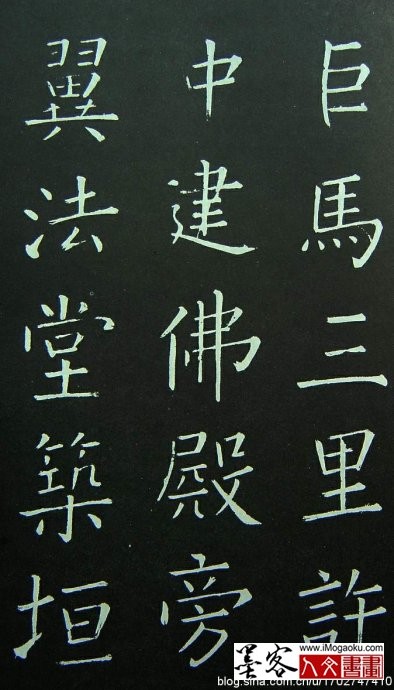 巨馬三里許
中建佛殿旁
翼法堂築垣
墨客
www.iMogaoku.com
人文書畫
blog.sina.com.cn/u/1702747410